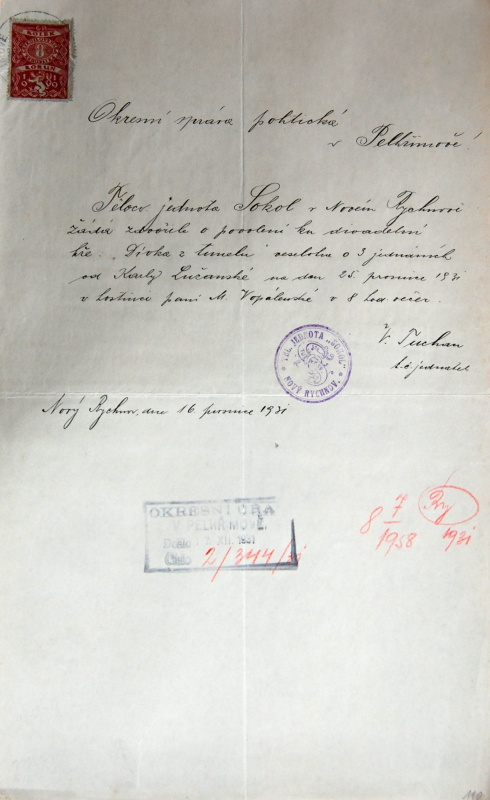 KOLEK
8
KORUN
Okresní správa politická
v Pelhřimově!
Tělocv. jednota Sokol v Novém Rychnově
žádá zdvořile o povolení ku divadelní
hře: „Dívka z tunelu" veselohra o 3 jednáních
od Karly Lužanské na den 25. prosince 1931
v hostinci paní M. Vopálenské v 8 hod. večer.
V. Tuchan
t.č. jednatel
TĚL. JEDNOTA „SOKOL"
NOVÝ RYCHNOV.
Nový Rychnov, dne 16. prosince 1931
OKRESNÍ ÚŘAD
V PELHŘIMOVĚ.
Došlo 17. XII. 1931
Číslo 2/344/31
8 7 Ry
1958 1931
110